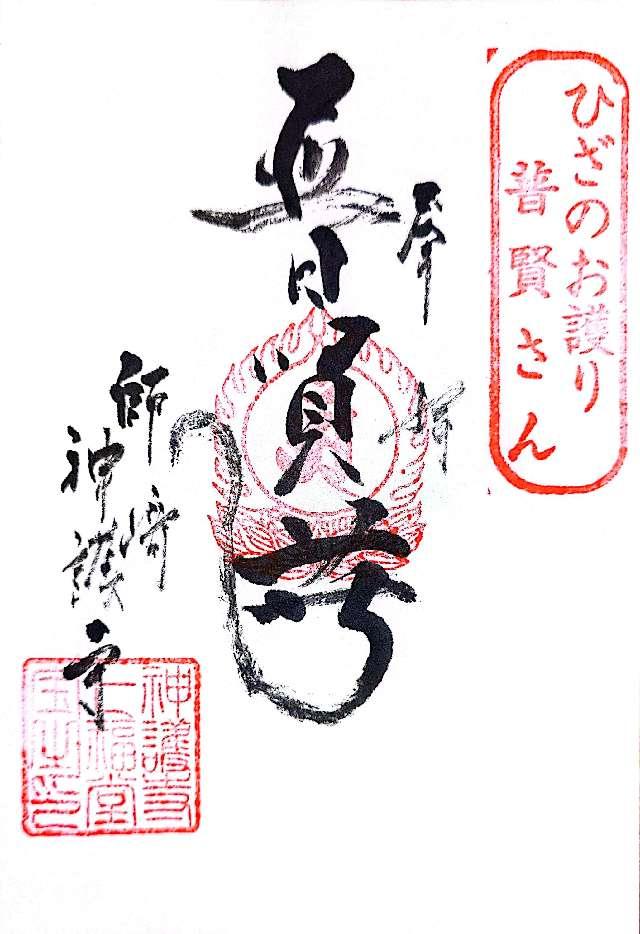 ひざのお護り
普賢さん
奉拝
普賢菩薩
師崎
神護寺
神護寺